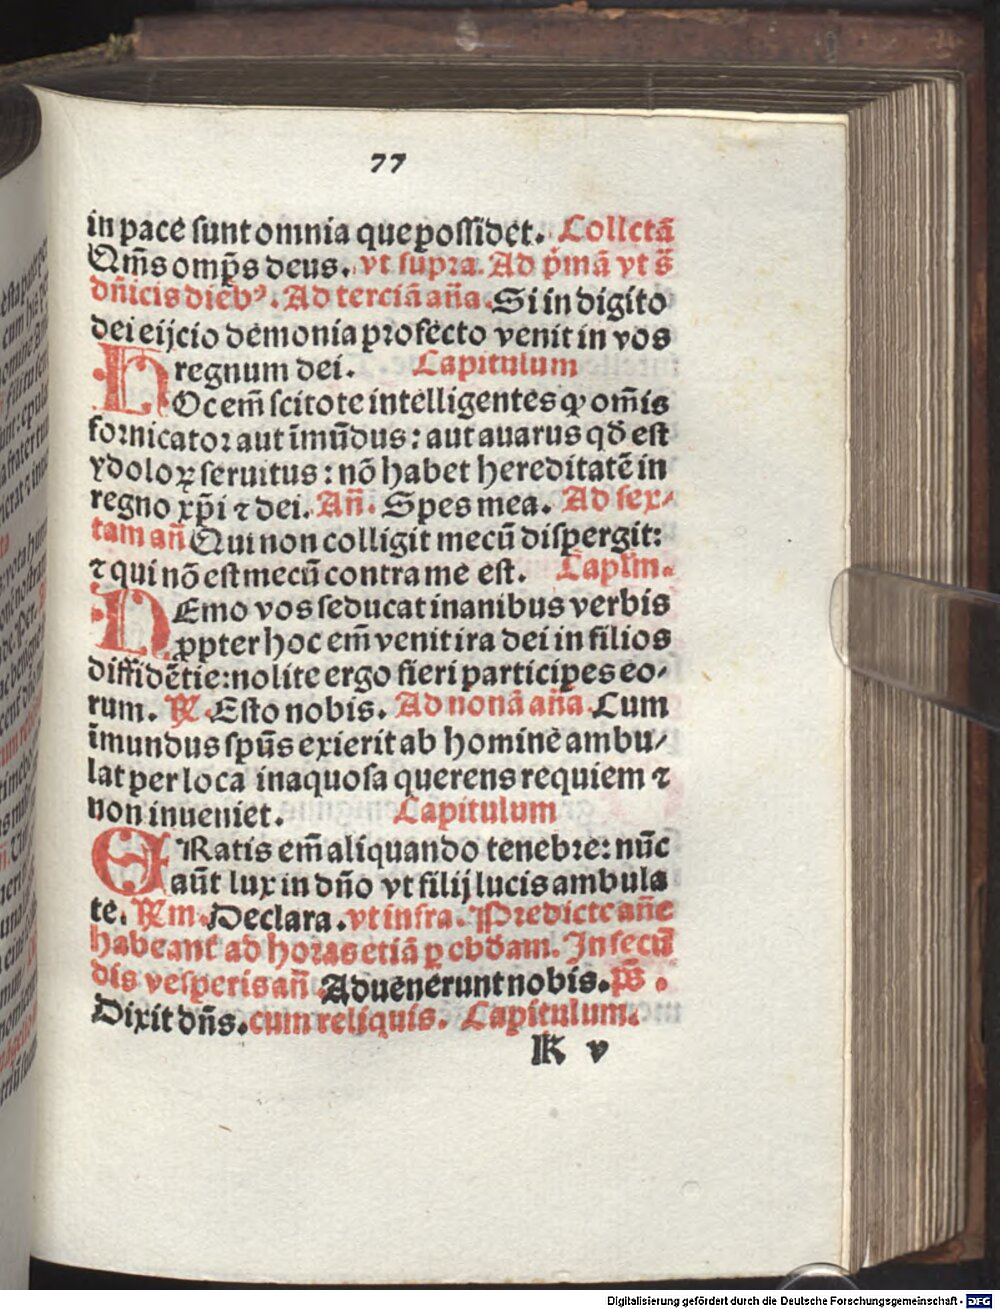 77
in pace sunt omnia que possidet. Collctā
Om̄s omp̄s deus. vt supra. Ad p̄mā vt s̄
dn̄icis diebꝰ. Ad terciā an̄a. Si in digito
dei eijcio demonia profecto venit in vos
regnum dei. Capitulum
HOc em̄ scitote intelligentes ꝙ om̄is
fornicator aut īmūdus: aut auarus qđ est
ydoloꝝ seruitus: nō habet hereditatē in
regno xp̄i ⁊ dei. An̄. Spes mea. Ad sex⸗
tam an̄ Qui non colligit mecū dispergit:
⁊ qui nō est mecū contra me est. Capl̄m.
NEmo vos seducat inanibus verbis
ꝓpter hoc em̄ venit ira dei in filios
diffidētie: nolite ergo fieri participes eo⸗
rum. ℞. Esto nobis. Ad nonā an̄a. Cum
īmundus spūs exierit ab homine ambu⸗
lat per loca inaquosa querens requiem ⁊
non inueniet. Capitulum
ERatis em̄ aliquando tenebre: nūc
aūt lux in dn̄o vt filij lucis ambula
te. ℞m. Declara. vt infra. Predicte an̄e
habeant ad horas etiā ꝑ ebdām. In secū
dis vesperis an̄. Aduenerunt nobis. ps̄.
Dixit dn̄s. cum reliquis. Capitulum.
K v
Digitalisierung gefördert durch die Deutsche Forschungsgemeinschaft - DFG